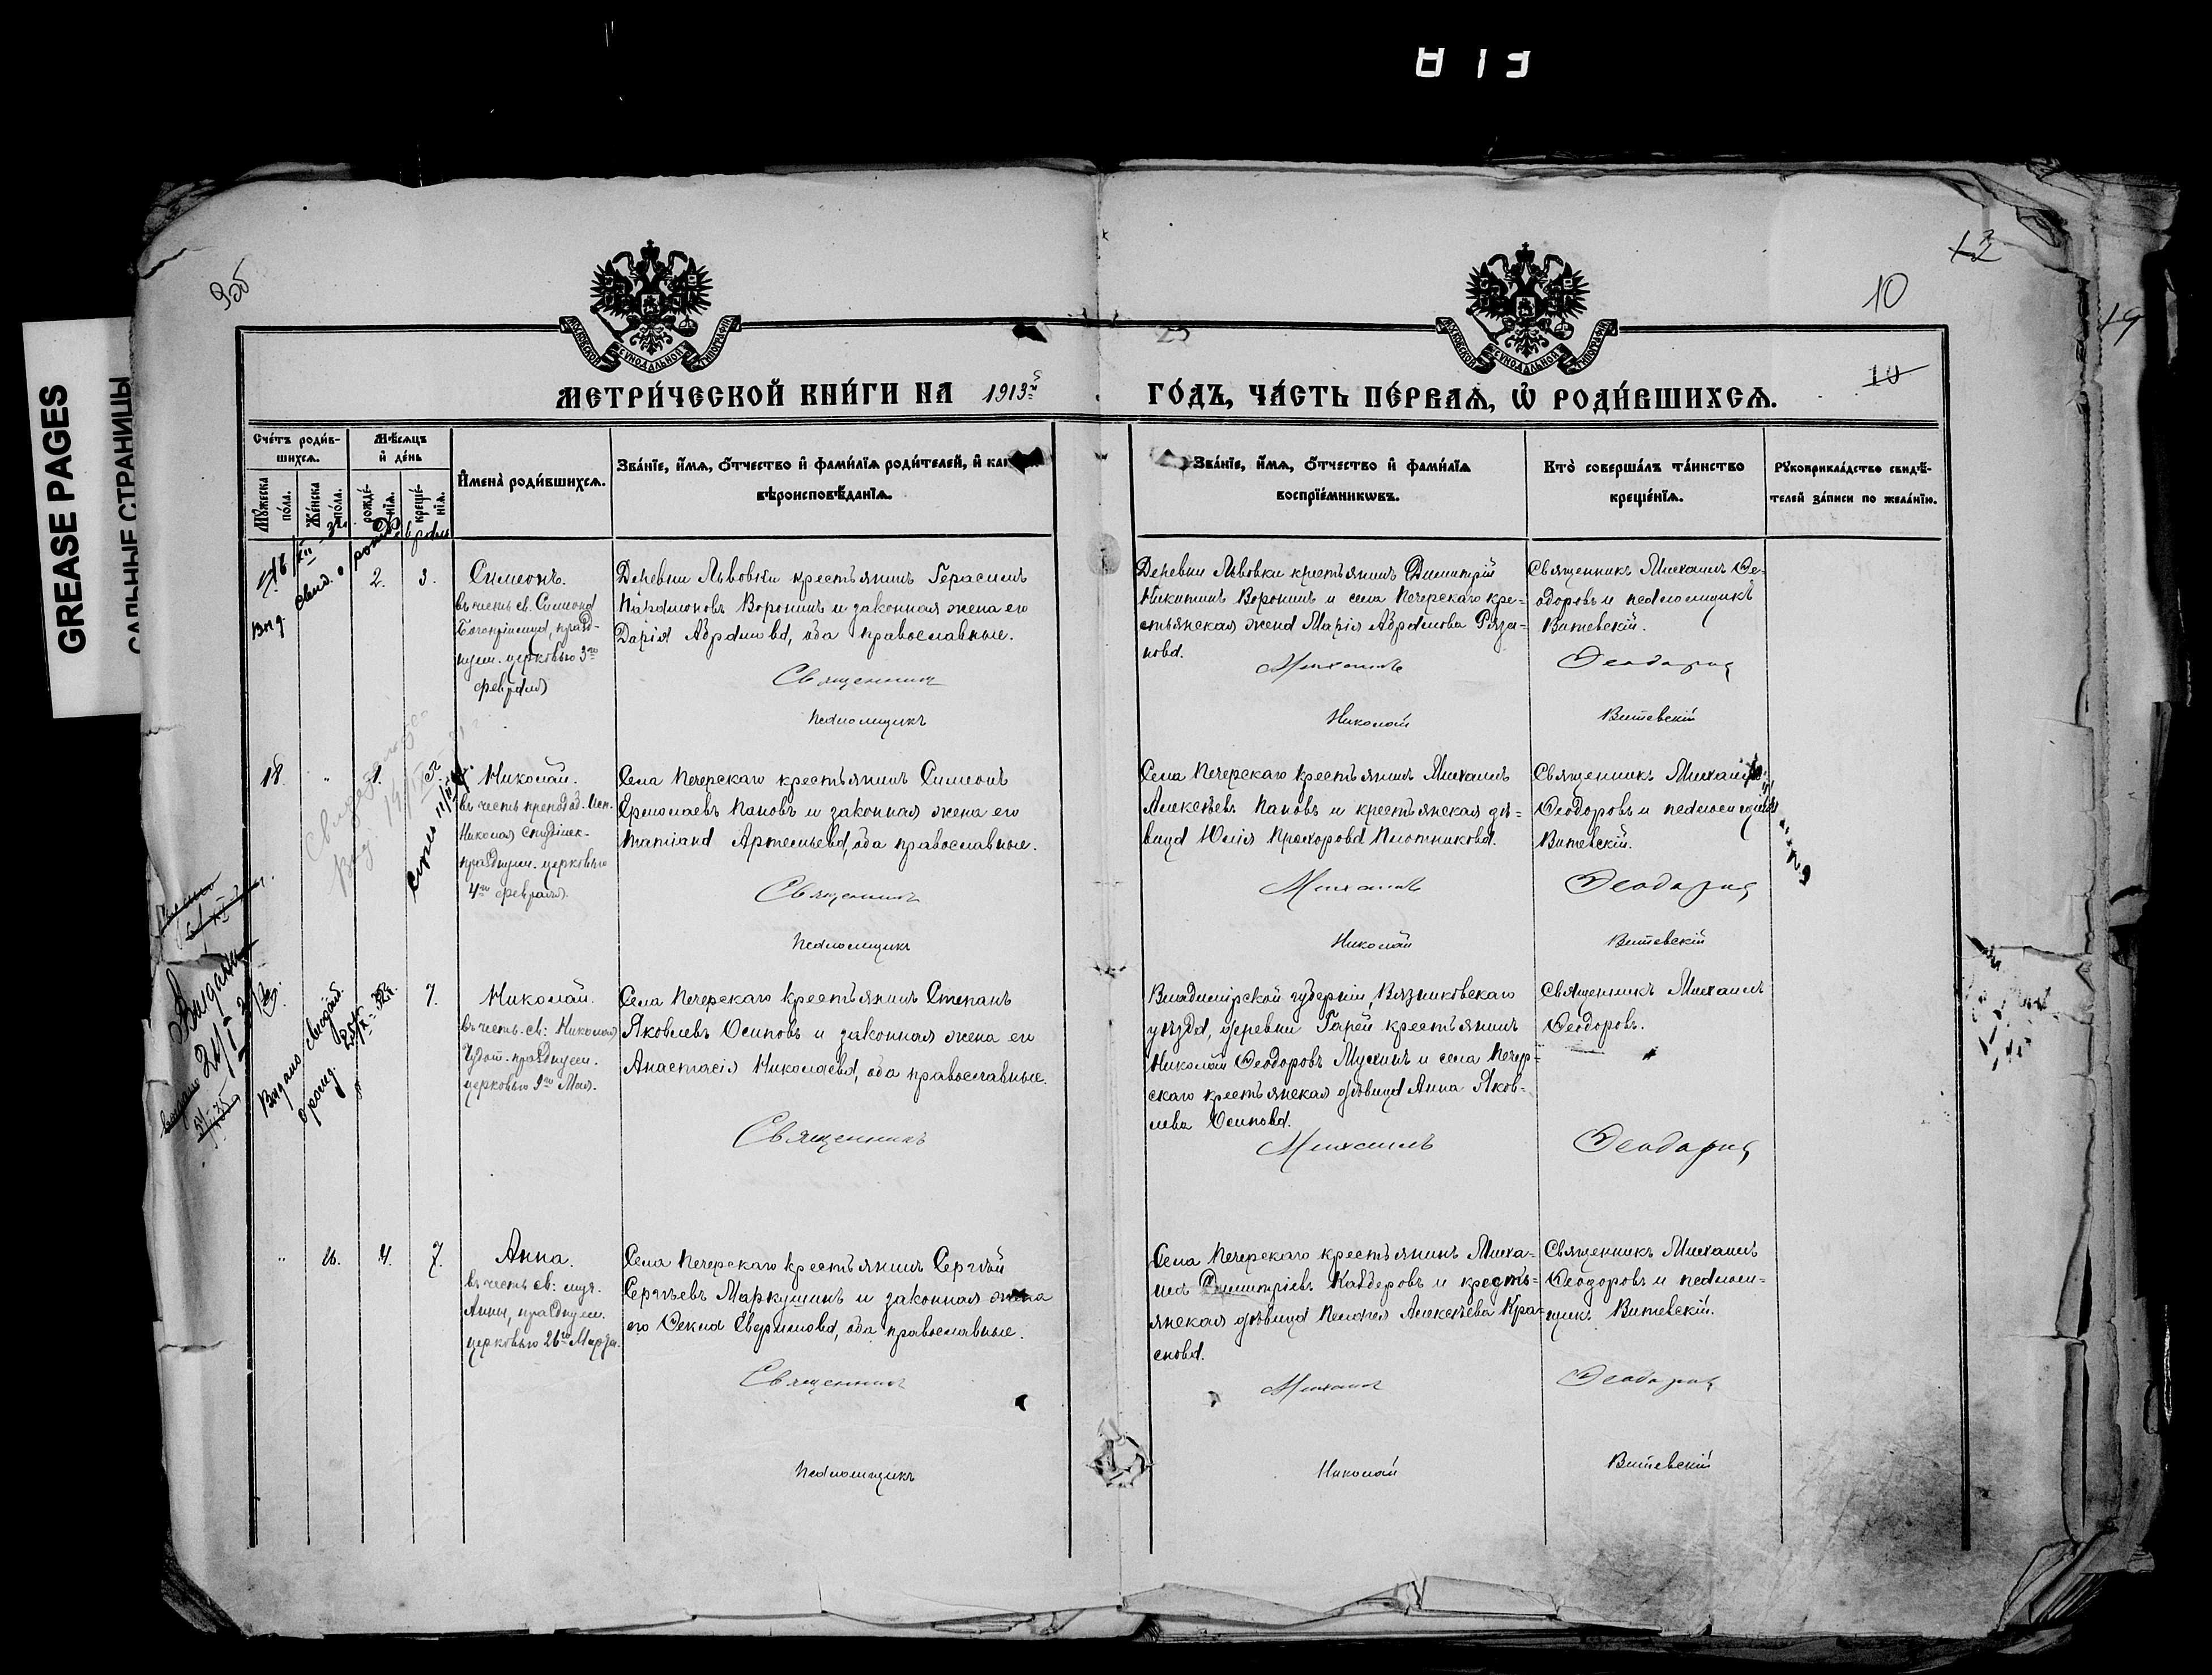 GREASE PAGES
САЛЬНЫЕ СТРАНИЦЫ
9об
10
12
19
10
МОСКОВСКОЙ СѴНОДАЛЬНОЙ ТИПОГРАФІИ
МОСКОВСКОЙ СѴНОДАЛЬНОЙ ТИПОГРАФІИ
МЕТРИ́ЧЕСКОЙ КНИ́ГИ НА 1913й
ГО́ДЪ, ЧА́СТЬ ПЕ́РВАѦ, Ѡ҆ РОДИ́ВШИХСѦ.
Сче́тъ роди́в-
шихсѧ.
Мѣ́сѧцъ
и҆ де́нь
Мꙋ́жеска
по́ла.
Же́нска
по́ла.
рожде́-
нїѧ.
креще́-
нїѧ.
И҆мена̀ роди́вшихсѧ.
Зва́нїе, и҆́мѧ, ѻ҆́тчество и҆ фами́лїѧ роди́телей, и҆
вѣроисповѣ́данїѧ.
Зва́нїе, и҆́мѧ, ѻ҆́тчество и҆ фами́лїѧ
воспрїе́мникѡвъ.
Кто̀ соверша́лъ та́инство
креще́нїѧ.
Рꙋкоприкла́дство свидѣ́-
телей за́писи по жела́нїю.
2.
3.
Симеонъ.
въ честь св. Симеона
Богопріимца, празд-
нуем. церковью 3го
февраля)
Деревни Львовки крестьянинъ Герасимъ
Парамоновъ Воронинъ и законная жена его
Дарія Абрамова, оба православные.
Священникъ
псаломщикъ
Деревни Львовки крестьянинъ Димитрій
Никитинъ Воронинъ и села Печерскаго кре-
стьянская жена Марія Абрамова Ряза-
нова.
Михаилъ
Николай
Священникъ Михаилъ Ѳе-
одоровъ и псаломщикъ
Витевскій.
Ѳеодоровъ
Витевскій
18.
"
1.
Николай.
въ честь преподоб. Исп.
Николая студійск.
празднуем. церковью
4го февраля).
Села Печерскаго крестьянинъ Симеонъ
Ермолаевъ Пановъ и законная жена его
Татіана Артемьева, оба православные.
Священникъ
псаломщикъ
Села Печерскаго крестьянинъ Михаилъ
Алексѣевъ Пановъ и крестьянская дѣ-
вица Юлія Прохорова Плотникова.
Михаилъ
Николай
Священникъ Михаилъ
Ѳеодоровъ и псаломщикъ
Витевскій.
Ѳеодоровъ
Витевскій
7.
Николай.
въ честь св: Николая
Чудот. празднуем.
церковью 9го Мая).
Села Печерскаго крестьянинъ Степанъ
Яковлевъ Осиповъ и законная жена его
Анастасія Николаева, оба православные.
Священникъ
Владимірской губерніи, Вязниковскаго
уѣзда, деревни Гарей крестьянинъ
Николай Ѳеодоровъ Мухинъ и села Печер-
скаго крестьянская дѣвица Анна Яков-
лева Осипова.
Михаилъ
Священникъ Михаилъ
Ѳеодоровъ.
Ѳеодоровъ
"
16.
4.
7.
Анна.
въ честь св: муч.
Анны, празднуем.
церковью 26го Марта.
Села Печерскаго крестьянинъ Сергѣй
Сергѣевъ Маркушинъ и законная жена
его Ѳекла Северимова, оба православные.
Священникъ
псаломщикъ
Села Печерскаго крестьянинъ Миха-
илъ Димитріевъ Кавдеровъ и кресть-
янская дѣвица Пелагея Алексѣева Кра-
снова.
Михаилъ
Николай
Священникъ Михаилъ
Ѳеодоровъ и псалом-
щикъ Витевскій.
Ѳеодоровъ
Витевскій